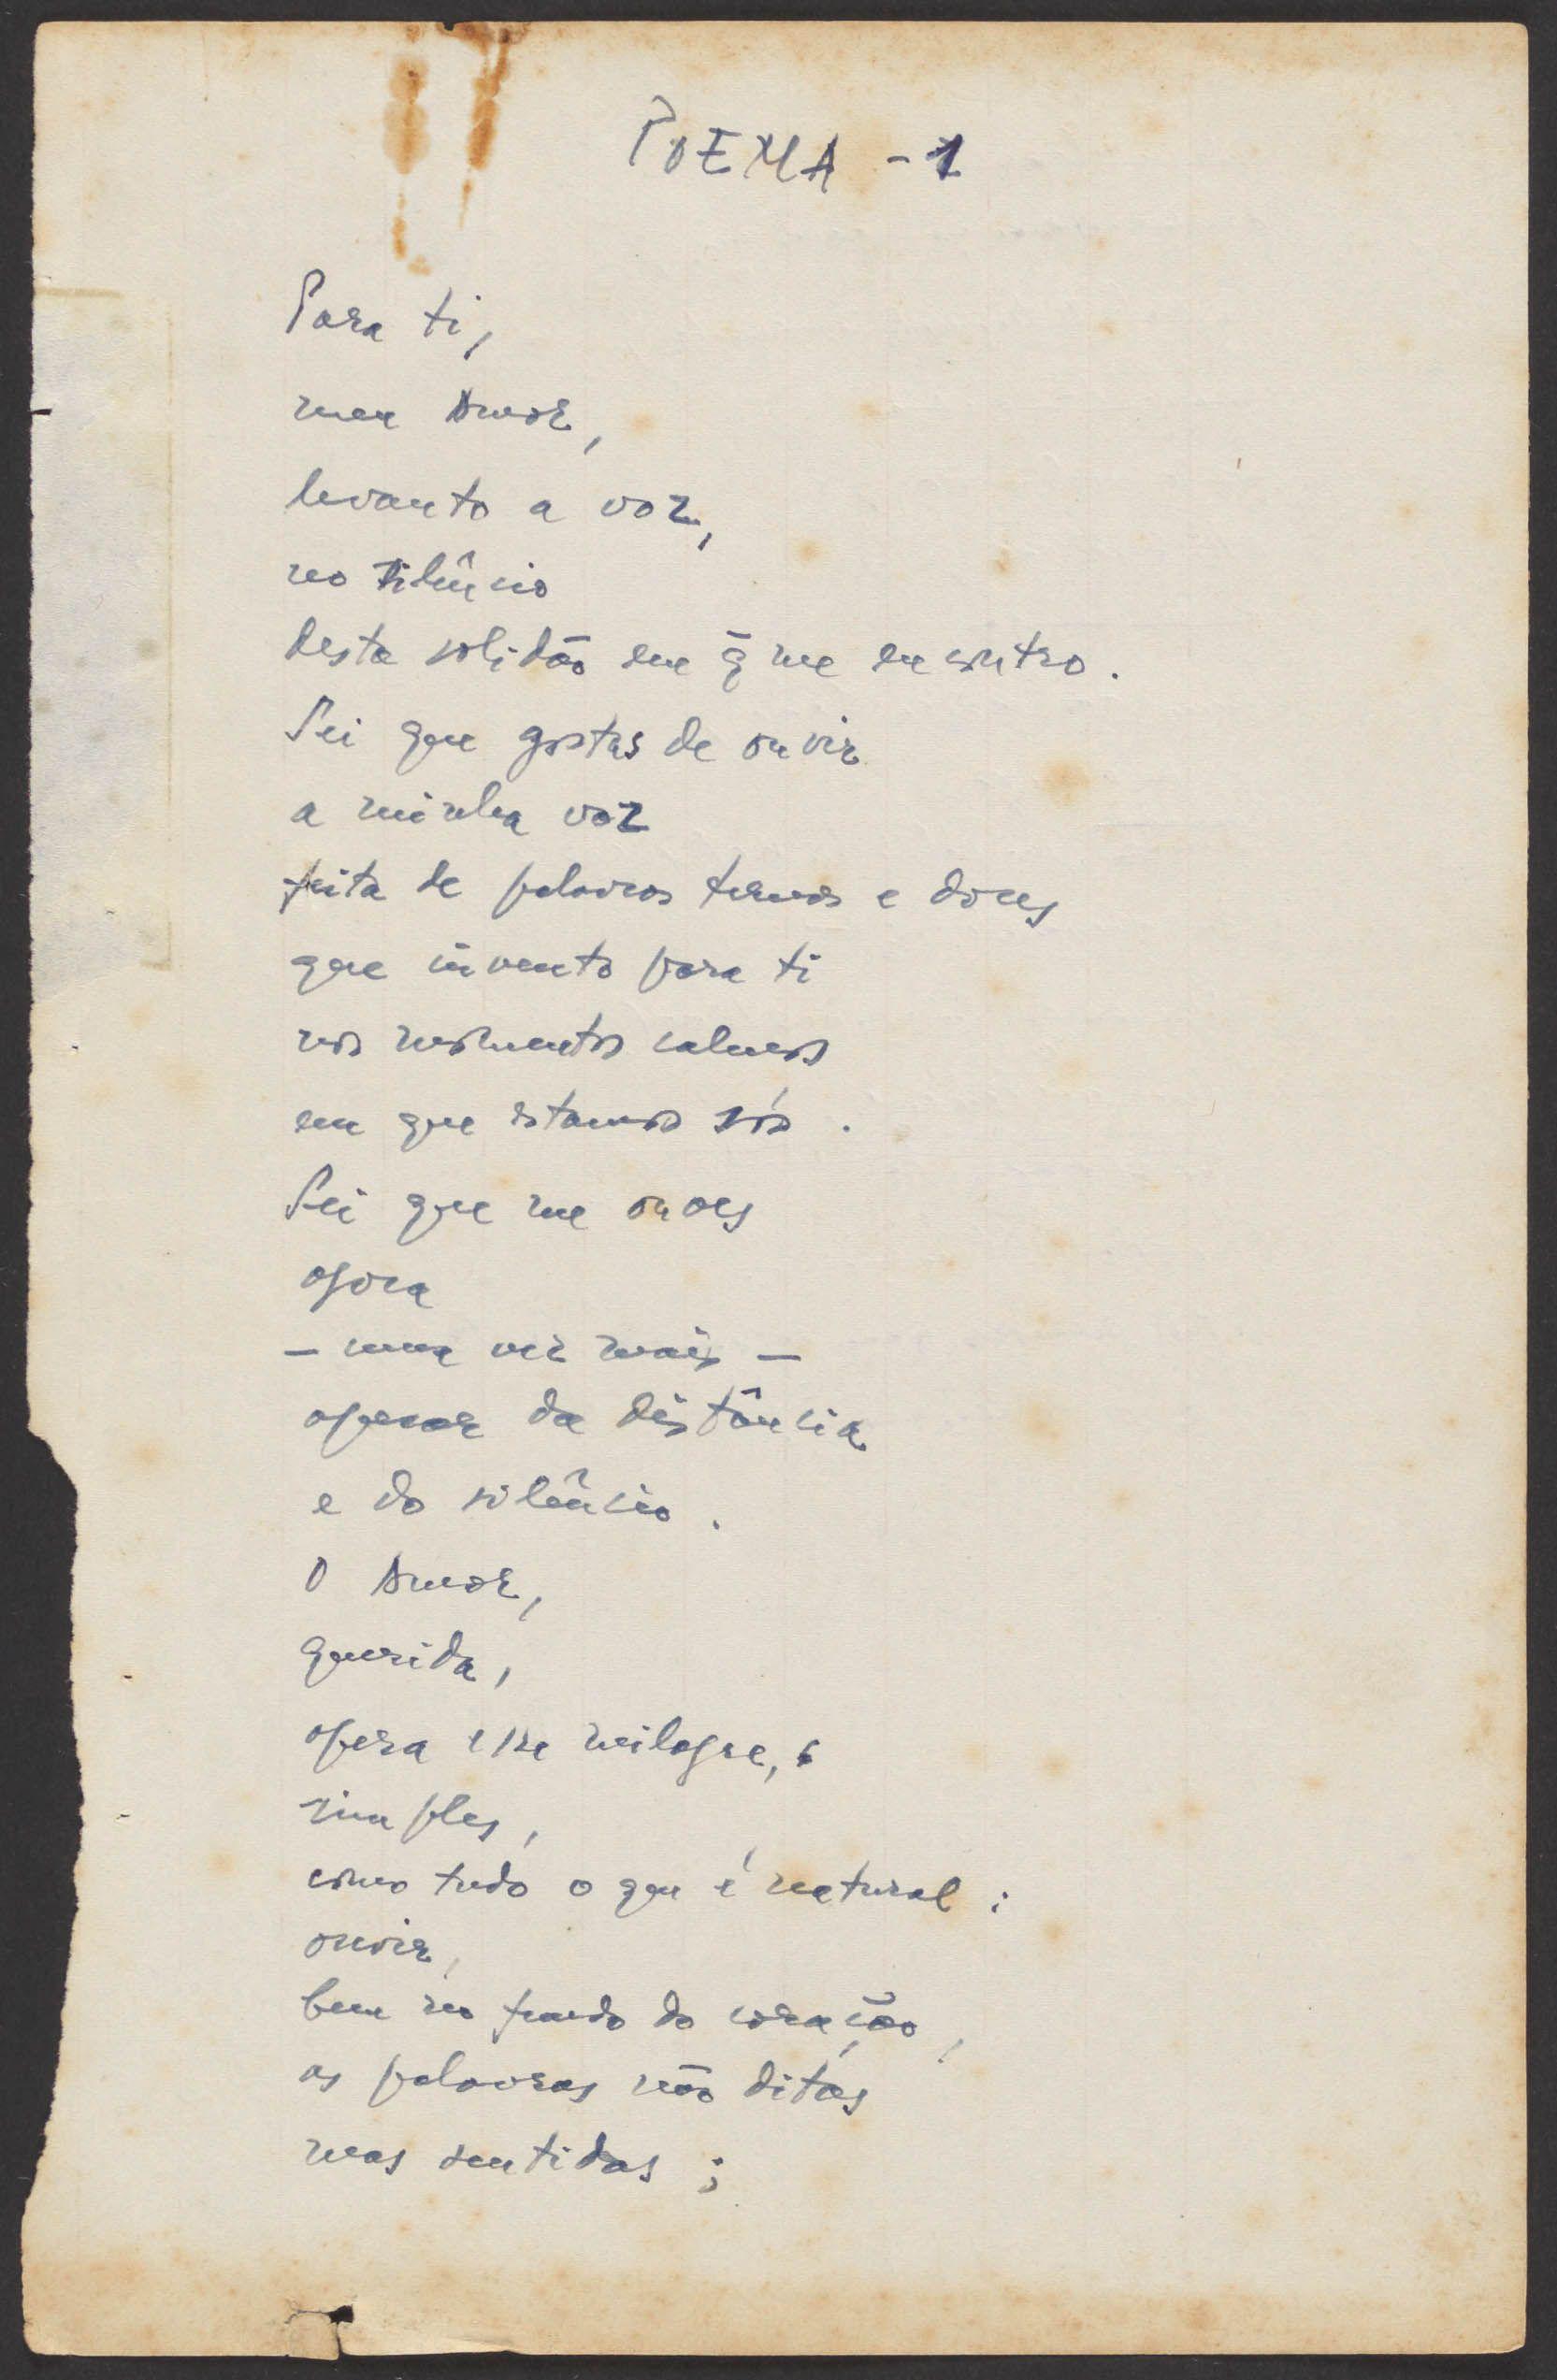 POEMA - 1
Para ti,
meu Amor,
levanto a voz,
no silêncio
desta solidão em q̃ me encontro.
Sei que gostas de ouvir
a minha voz
feita de palavras ternas e doces
que invento para ti
nos momentos calmos
em que estamos sós.
Sei que me ouves
agora
— uma vez mais —
apesar da distância
e do silêncio.
O Amor,
querida,
opera esse milagre,
simples,
como tudo o que é natural:
ouvir,
bem no fundo do coração,
as palavras não ditas
mas sentidas;